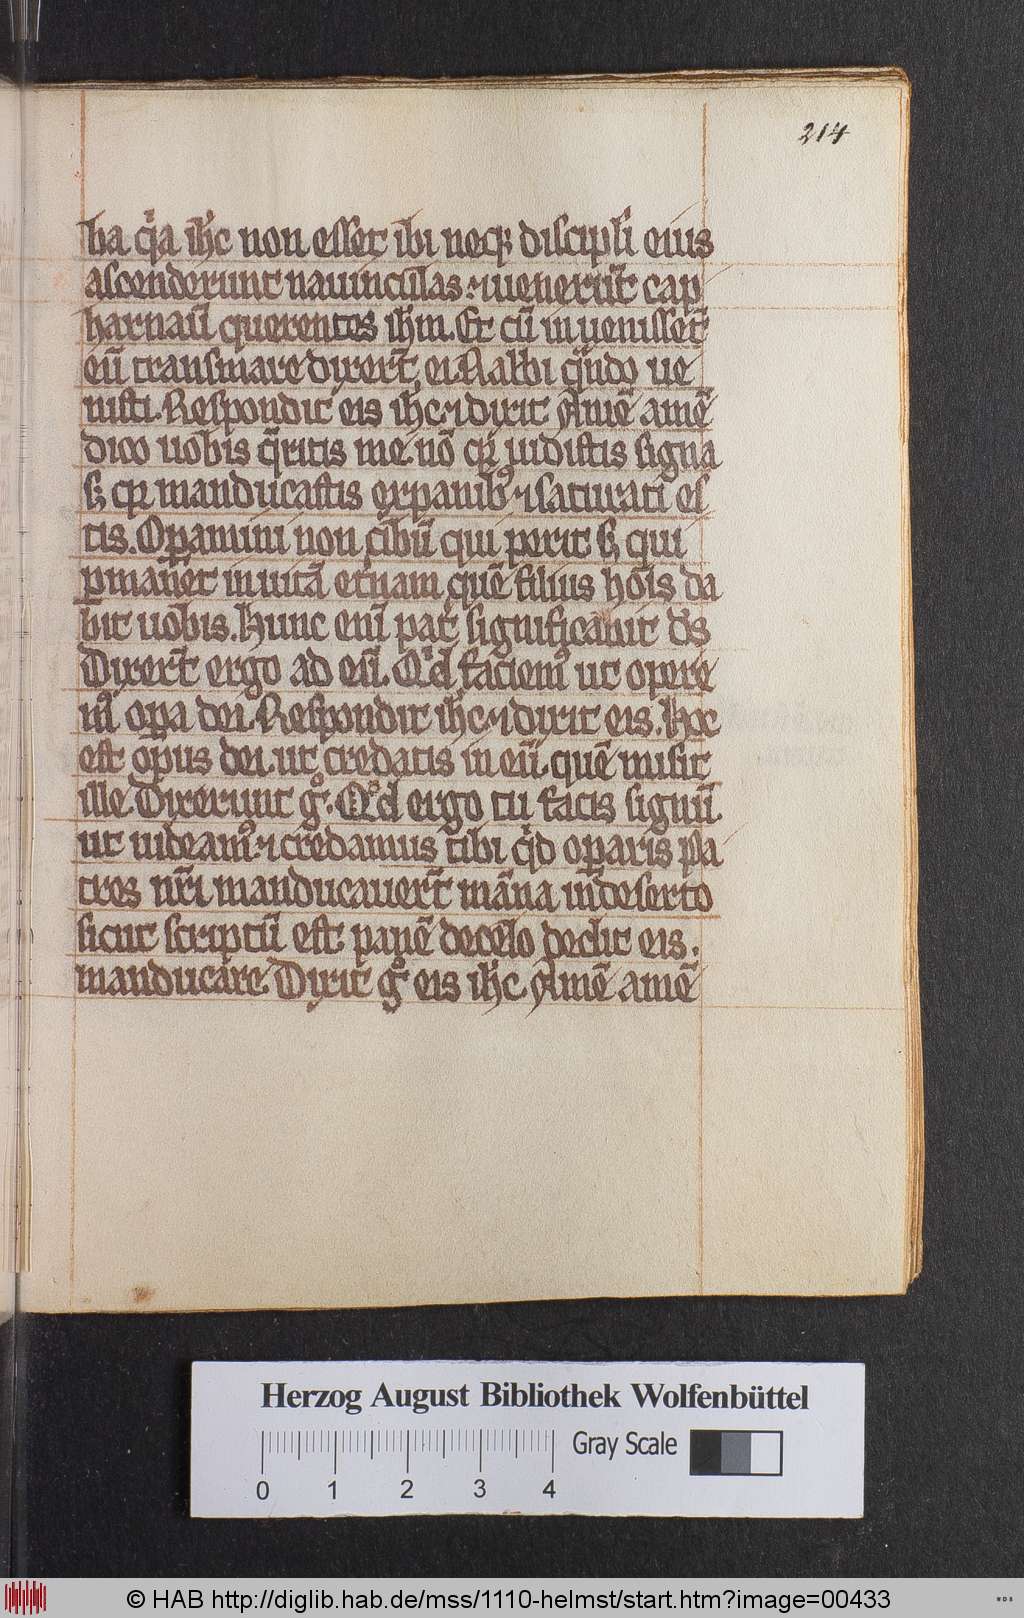 214
ba qͥa ih̄c non esset ibi neqꝫ discipl̄i eius
ascenderunt nauinculas ⁊ uenerūt cap
harnaū querentes ih̄m. Et cū inuenissēt
eū transmare dixer̄t ei Rabbi qͣndo ue
nisti. Respondit eis ih̄c ⁊ dixit Amē amē
dico uobis q̄ritis me nō qꝛ uidistis signa
sꝫ qꝛ manducastis expanibꝰ ⁊ saturati es
tis. Oꝑamini non cibū qui perit sꝫ qui
ꝑmanet inuitā et̄nam quē filius hōis da
bit uobis. Hunc enī pat̄ significauit d̄s
Dixer̄t ergo ad eū. Qͥd faciemꝰ ut opere
mꝰ oꝑa dei. Respondit ih̄c ⁊ dixit eis. Hoc
est opus dei. ut credatis in eū. quē misit
ille. Dixerunt gͦ. Qͦd ergo tu facis signū.
ut uideamꝰ ⁊ credamus tibi qͥd oꝑaris pa
tres nr̄i manducauer̄t māna indeserto
sicut scriptū est panē decelo dedit eis.
manducare. Dixit gͦ eis ih̄c Amē amē
Herzog August Bibliothek Wolfenbüttel
Gray Scale
0 1 2 3 4
© HAB http://diglib.hab.de/mss/1110-helmst/start.htm?image=00433